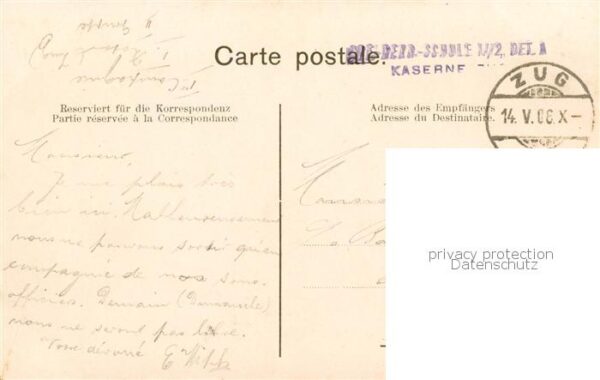 Carte postale.
KASERNE
ZUG
14. V. 06. X—
Reserviert für die Korrespondenz
Partie réservée à la Correspondance
Adresse des Empfängers
Adresse du Destinataire.
Monsieur,
Je me plais très
bien ici. Malheureusement
nous ne pouvons sortir qu'en
compagnie de nos sous-
officiers. Demain (Dimanche)
nous ne seront pas
Votre dévoué E
privacy protection
Datenschutz